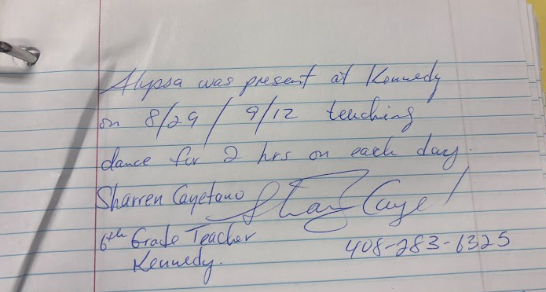 Alyssa was present at Kennedy
on 8/29 / 9/12 teaching
dance for 2 hrs on each day.
Sharren Cayetano
6th Grade Teacher
Kennedy.
408-283-6325